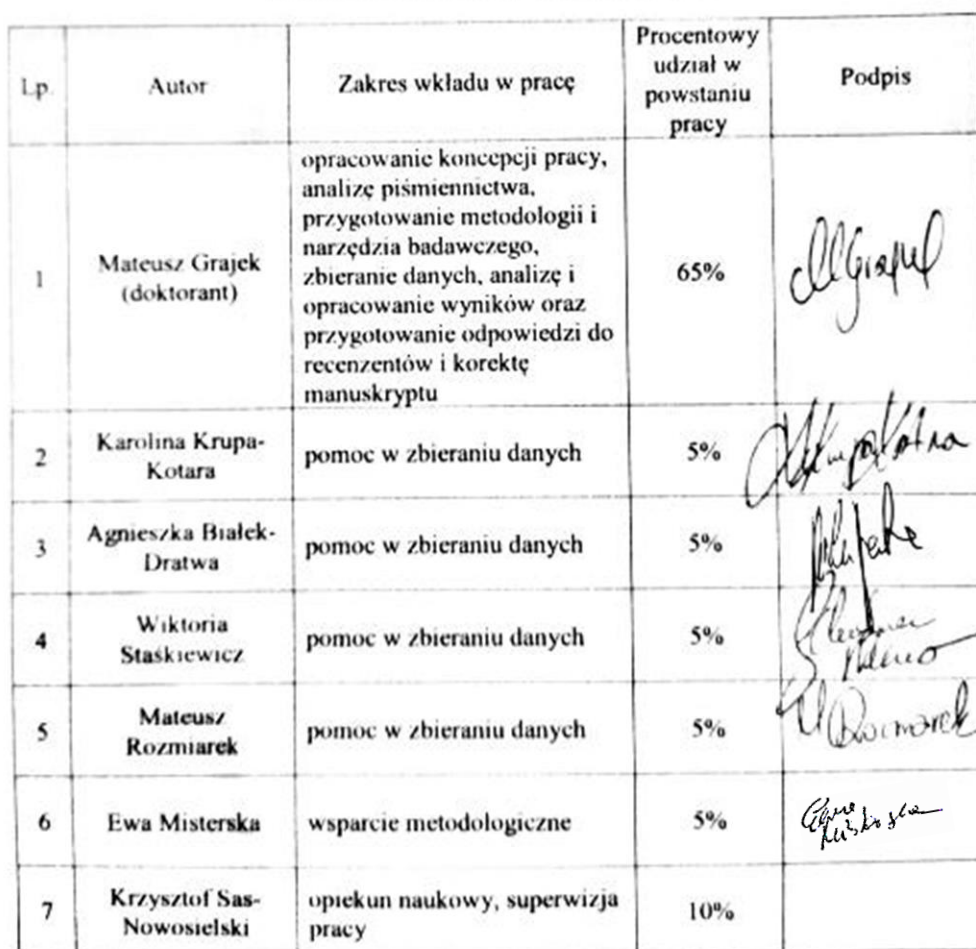 Lp.
Autor
Zakres wkładu w pracę
Procentowy
udział w
powstaniu
pracy
Podpis
1
Mateusz Grajek
(doktorant)
opracowanie koncepcji pracy,
analizę piśmiennictwa,
przygotowanie metodologii i
narzędzia badawczego,
zbieranie danych, analizę i
opracowanie wyników oraz
przygotowanie odpowiedzi do
recenzentów i korektę
manuskryptu
65%
MGrajek
2
Karolina Krupa-
Kotara
pomoc w zbieraniu danych
5%
KKrupa Kotara
3
Agnieszka Białek-
Dratwa
pomoc w zbieraniu danych
5%
4
Wiktoria
Staśkiewicz
pomoc w zbieraniu danych
5%
5
Mateusz
Rozmiarek
pomoc w zbieraniu danych
5%
M Rozmiarek
6
Ewa Misterska
wsparcie metodologiczne
5%
Ewa
Misterska
7
Krzysztof Sas-
Nowosielski
opiekun naukowy, superwizja
pracy
10%